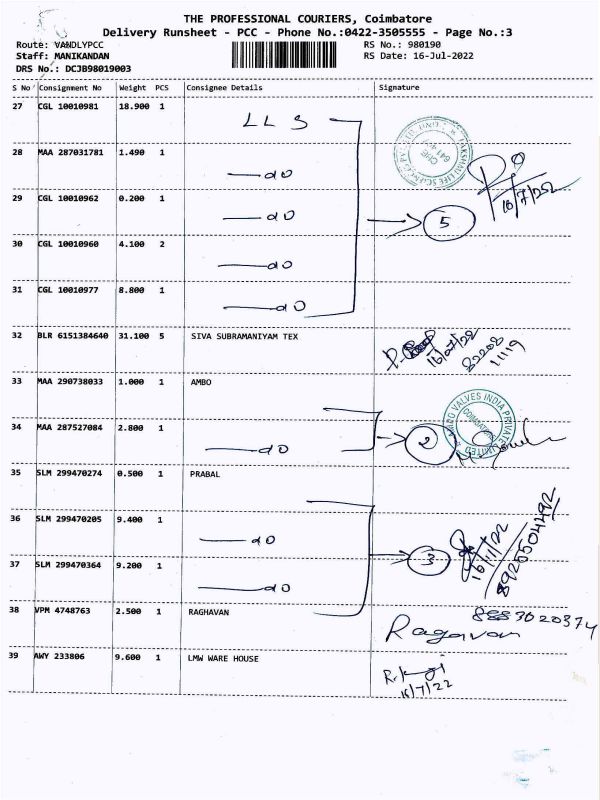 THE PROFESSIONAL COURIERS, Coimbatore
Delivery Runsheet - PCC - Phone No.:0422-3505555 - Page No.:3
Route: VANDLYPCC RS No.: 980190
Staff: MANIKANDAN RS Date: 16-Jul-2022
DRS No.: DCJB98019003
S No Consignment No Weight PCS Consignee Details Signature
27 CGL 10010981 18.900 1 LLS
28 MAA 287031781 1.490 1 do
16/7/22
29 CGL 10010962 0.200 1 do 5
30 CGL 10010960 4.100 2 do
31 CGL 10010977 8.800 1 do
32 BLR 6151384640 31.100 5 SIVA SUBRAMANIYAM TEX
16/07/22
82208
11119
33 MAA 290738033 1.000 1 AMBO
VALVES INDIA PRIVATE LIMITED
COIMBATORE
34 MAA 287527084 2.800 1 do 2
35 SLM 299470274 0.500 1 PRABAL
36 SLM 299470205 9.400 1 do
37 SLM 299470364 9.200 1 do 3
8925504492
38 VPM 4748763 2.500 1 RAGHAVAN
8883020374
Ragavan
39 AWY 233806 9.600 1 LMW WARE HOUSE
16/7/22